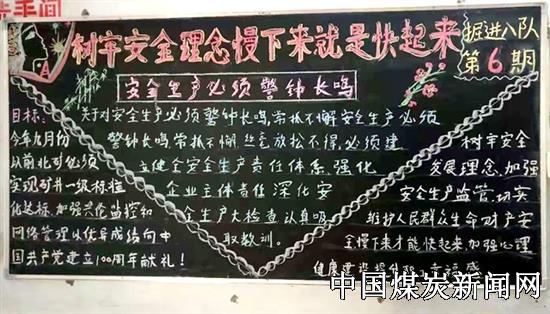 树牢安全理念慢下来就是快起来
掘进八队
第6期
安全生产必须警钟长鸣
目标:
今年九月份
以前北矿必须
实现矿井一级标准
化达标,加强舆伦监控和
网络管理以优异成绩向中
国共产党建立100周年献礼!
关于对安全生产必须警钟长鸣常抓不懈安全生产必须
警钟长鸣,常抓不懈丝毫放松不得,必须建
立健全安全生产责任体系,强化
企业主体责任深化安
全生产大检查认真吸
取教训。
树牢安全
发展理念,加强
安全生产监管,切实
维护人民群众生命财产安
全慢下来才能快起来,加强心理
健康建设提升职工幸福感
中国煤炭新闻网